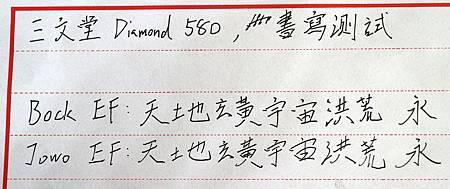 三文堂 Diamond 580 , 書寫測試
Bock EF: 天地玄黃宇宙洪荒 永
Jowo EF: 天地玄黃宇宙洪荒 永